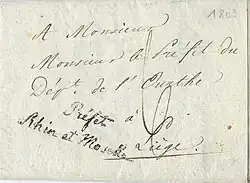 1803
A Monsieur
Monsieur le Préfet du
Dépt. de l'Ourthe
Préfet à
Rhin et Moselle Liège.